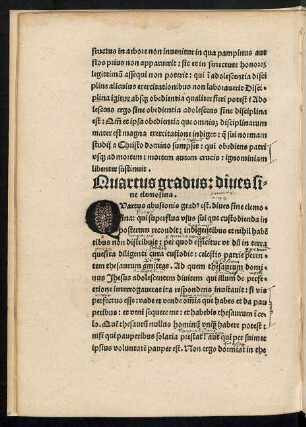 fructus in arbore non invenitur in qua pampinus aut
flos prius non apparuerit: sic et in senectute honorẽ
legittimũ assequi non poterit: qui ĩ adolescentia disci
plinẽ alicuius exercitationibus non laborauerit Disci
plina igitur absqʒ obedientia qualiter fieri potest: Ado
lescens ergo sine obedientia adolescens sine disciplina
est: Qm̃ et ipsa obedientia que omniuʒ disciplinarum
mater est magna exercitatione indiget: q̃ sui normam
studij a Christo domino sumpsit: qui obediens patri
vsqʒ ad mortem: mortem autem crucis: ignominiam
libenter sustinuit.
Quartus gradus: diues si
ne elemosina.
Quartus abusionis grad⁹ est. diues sine elemo
sina: qui superflua vsus sui que custodienda in
posterum recondit: indigentibus et nihil habẽ
tibus non distribuit: per quod efficitur vt dũ in terra
quesita diligenti cura custodit: celestis patrie peren⸗
nem thesaurum amittat. Ad quem thesaurum domi⸗
nus Jhesus adolescentem diuitem qui illum de perfe⸗
ctione interrogauerat ita respondens inuitauit: si vis
perfectus esse: vade et vende omnia que habes et da pau
peribus: et veni sequere me: et habebis thesaurum ĩ ce
lo. Quẽ thesaurũ nullus hominũ vnq̃ habere potest:
nisi qui pauperibus solatia prestat l aut qui per suimet
ipsius voluntatẽ pauper est. Non ergo dormiat in the